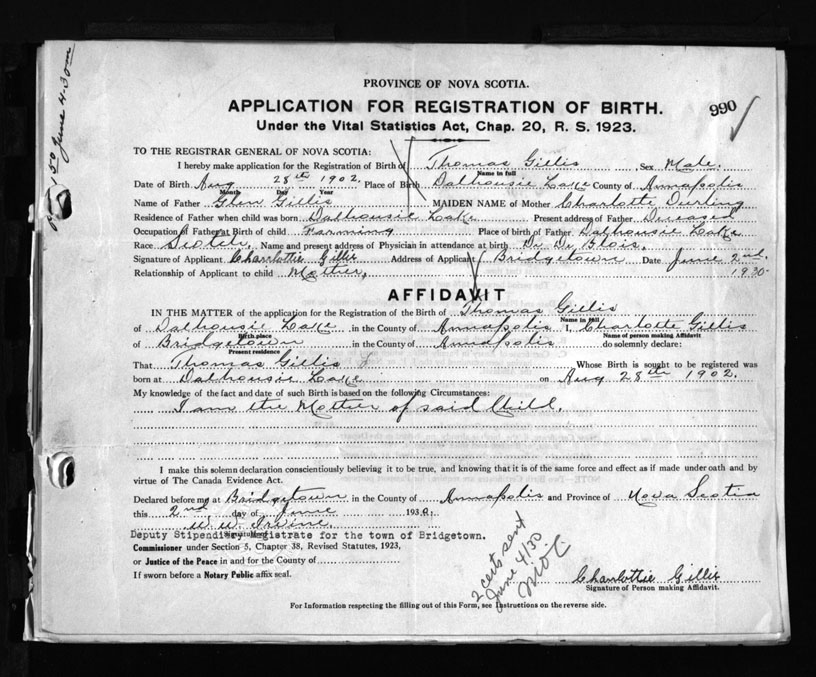 PROVINCE OF NOVA SCOTIA.
APPLICATION FOR REGISTRATION OF BIRTH. 990
Under the Vital Statistics Act, Chap. 20, R. S. 1923.
TO THE REGISTRAR GENERAL OF NOVA SCOTIA:
I hereby make application for the Registration of Birth of Thomas Gillis Sex Male.
Name in full
Date of Birth Aug 28th 1902. Place of Birth Dalhousie Lake County of Annapolis
Month Day Year
Name of Father Glen Gillis MAIDEN NAME of Mother Charlotte Durling
Residence of Father when child was born Dalhousie Lake Present address of Father Deceased
Occupation of Father at Birth of child Farming Place of birth of Father Dalhousie Lake
Race Scotch. Name and present address of Physician in attendance at birth Dr De Blois.
Signature of Applicant Charlottie Gillis Address of Applicant Bridgetown Date June 2nd.
1930
Relationship of Applicant to child Mother.
AFFIDAVIT
IN THE MATTER of the application for the Registration of the Birth of Thomas Gillis
Name in full
of Dalhousie Lake in the County of Annapolis I, Charlotte Gillis
Birth place Name of person making Affidavit
of Bridgetown in the County of Annapolis do solemnly declare:
Present residence
That Thomas Gillis Whose Birth is sought to be registered was
born at Dalhousie Lake on Aug 28th 1902.
My knowledge of the fact and date of such Birth is based on the following Circumstances:
I am the Mother of said Child.
I make this solemn declaration conscientiously believing it to be true, and knowing that it is of the same force and effect as if made under oath and by
virtue of The Canada Evidence Act.
Declared before me at Bridgetown in the County of Annapolis and Province of Nova Scotia
this 2nd day of June 1930.
Irvine.
Deputy Stipendiary Magistrate for the town of Bridgetown.
Commissioner under Section 5, Chapter 38, Revised Statutes, 1923,
or Justice of the Peace in and for the County of
If sworn before a Notary Public affix seal.
2 certs sent
June 4/30
Charlottie Gillis
Signature of Person making Affidavit.
For Information respecting the filling out of this Form, see Instructions on the reverse side.